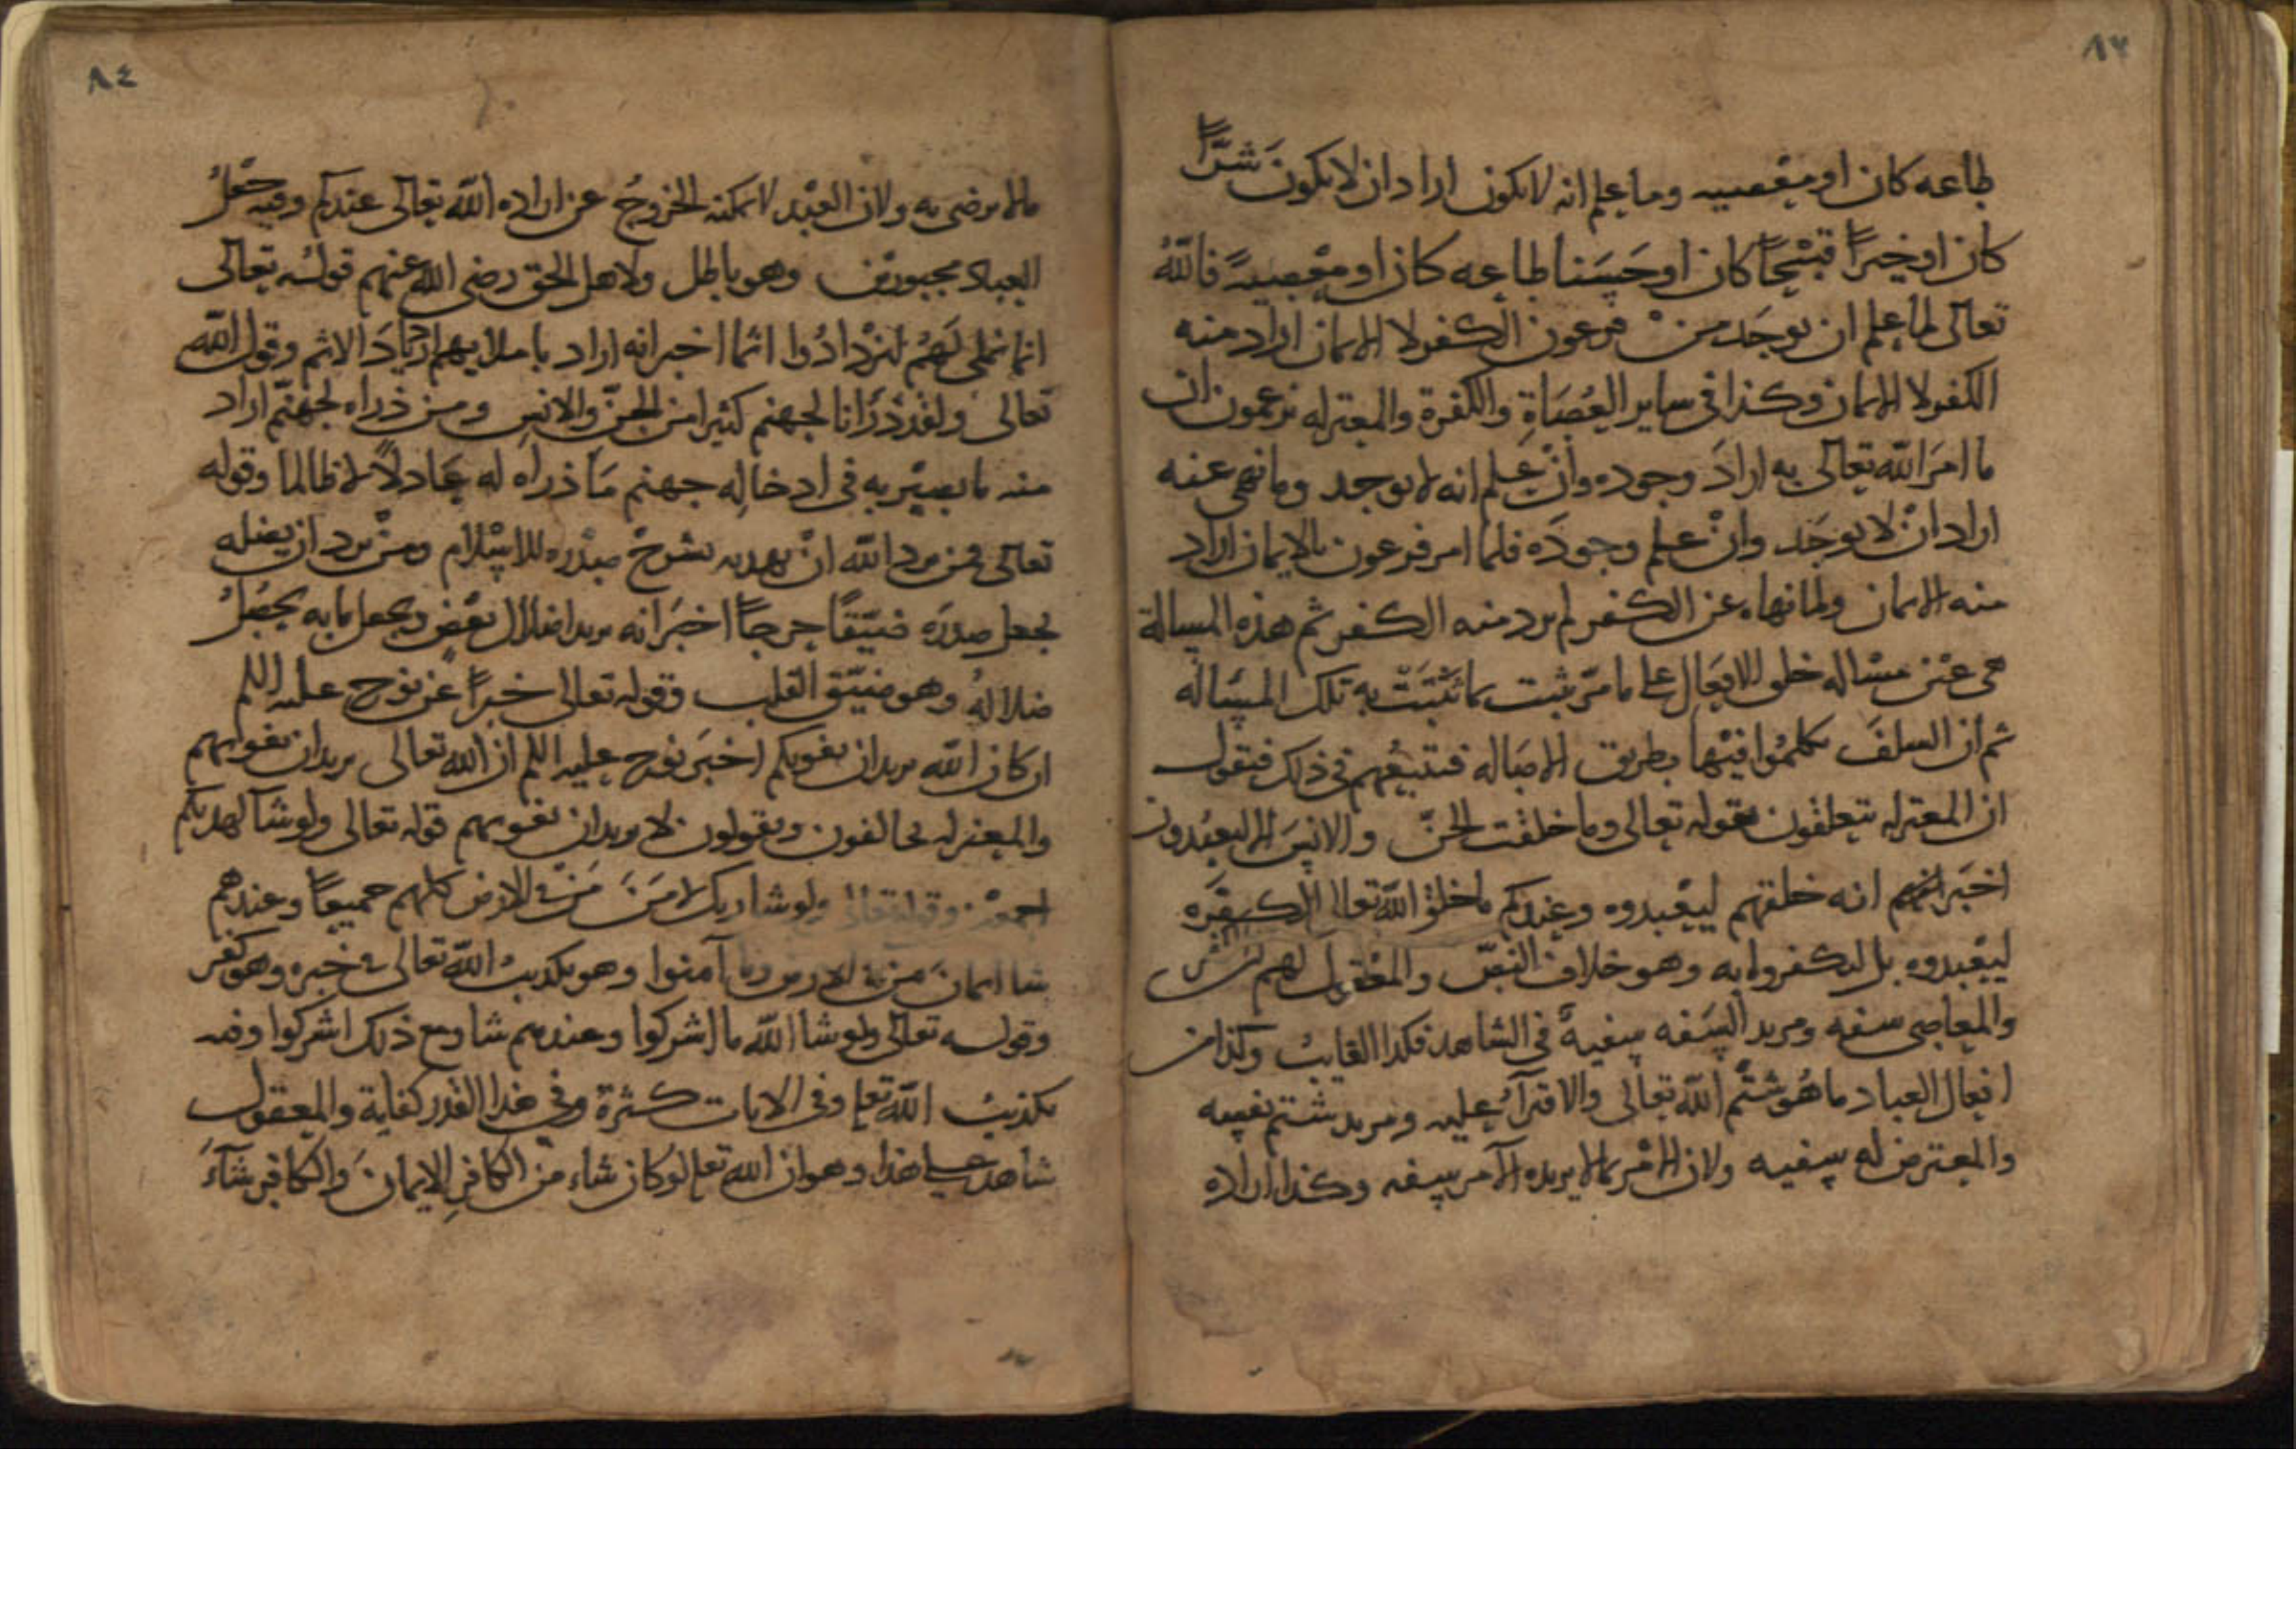 ٨٣
طاعه كان او معصيه وما علم انه لا يكون اراد ان لا يكون شرًّا
كان او خيرًا قبيْحًا كان او حَسَنا طاعه كان او معْصيةً فاللّٰهُ
تعالى لما علم ان يوجَد منْ فرعون الكفر لا الايمان اراد منه
الكفر لا الايمان وكذا في ساير العُصَاةِ والكفرة والمعتزله يزعمون ان
ما امرَ اللّٰه تعالى به ارادَ وجوده وانْ علم انه لا يوجد وما نهى عنه
اراد انْ لا يوجَد وانْ علم وجودَه فلما امر فرعون بالايمان اراد
منه الايمان ولما نهاه عن الكفر لم يرد منه الكفر ثم هذه المسالة
هى عيْن مسْاله خلق الافعَال على ما مرّ يثبت بما ثَبَتَتْ به تلك المسَاله
ثم ان السلفَ تكلمُوا فيْها بطريق الاصَاله فنتبعُهم في ذلك فنقول
ان المعتزله يتعلقون بقوله تعالى وما خلقت الجنّ والانسَ الا ليعبُدون
اخبَر انه خلقهم ليعْبدوه وعِندكم ما خلق اللّٰه تعالى الكفَرَه
ليعْبدوه بل ليكفروا به وهو خلاف النصّ والمعْقول لهم
والمعاصى سفه ومريد السَفه سفيهٌ في الشاهد فكذا الغايبُ وكذا من
افعال العباد ما هُو شتْمُ اللّٰه تعالى والافترآءُ عليه ومريد شتم نفسه
والمعترض له سفيه ولان الامْر بما لا يريده الآمر سفه وكذا اراده
٨٤
ما لا يرضى به ولان العبْد لا يمكنه الخروجُ عن اراده اللّٰه تعالى عندكم وفيه جعْلُ
العباد مجبورين وهو باطل ولاهل الحق رضى اللّٰه عنهم قولُه تعالى
انما نملى لَهُم ليَزْدادُوا اثما اخبر انه اراد باملايهم ازديادَ الاثم وقول اللّٰه
تعالى ولقد ذرَانا لجهنم كثيرا من الجنّ والانس ومن ذراه لجهنّم اراد
منه ما يصيْر به في ادخاله جهنم مَا ذراه له عَادلًا لا ظالما وقوله
تعالى فمن يرد اللّٰه انْ يهديه يشرحْ صدْره للاسْلام ومنْ يرد ان يضله
يجعل صدرَه ضيّقًا حرجًا اخبَر انه يريد اضلال بعْض ويجعل ما به يحصُلُ
ضلالهُ وهو ضيّق القلب وقوله تعالى خبرًا عن نوح عليه اللم
ان كان اللّٰه يريد ان يغويكم اخبَر نوح عليه اللم ان اللّٰه تعالى يريد ان يغويهم
والمعتزله يخالفون ويقولون لا يريد ان يغويهم قوله تعالى ولو شا لهديكم
اجمعيْن وقوله تعالى ولو شا ربك لامَنَ مَنْ في الارض كلهم جميعًا وعندهم
شا ايمانَ من في الارض وما آمنوا وهو تكذيبُ اللّٰه تعالى في خبره وهو كفر
وقوله تعالى ولو شا اللّٰه ما اشركوا وعندهم شا ومع ذلك اشركوا وفيه
تكذيبُ اللّٰه تعا وفي الايات كثرة وفي هذا القدر كفاية والمعقول
شاهد على هذا وهو ان اللّٰه تعا لو كان شاء من الكافر الايمانَ والكافر شآءَ